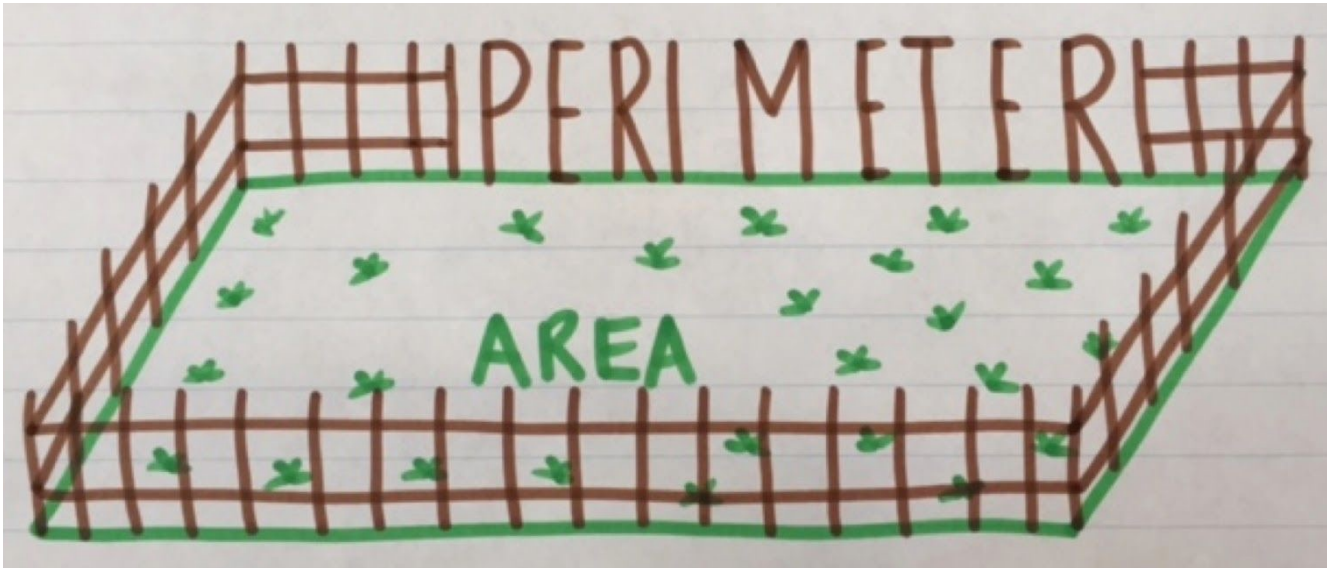 PERIMETER
AREA